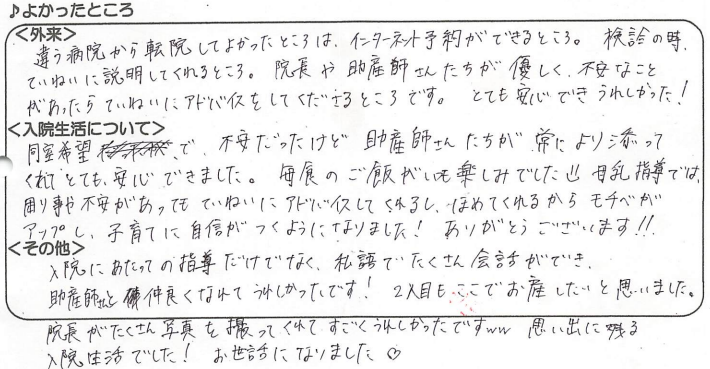 ♪よかったところ
<外来>
違う病院から転院してよかったところは、インターネット予約ができるところ。 検診の時、
ていねいに説明してくれるところ。 院長や助産師さんたちが優しく、不安なこと
があったらていねいにアドバイスをしてくださるところです。 とても安心できうれしかった!
<入院生活について>
同室希望 で、不安だったけど 助産師さんたちが常により添って
くれて とても、安心できました。 毎食のご飯がいつも楽しみでした 母乳指導では、
困り事や不安があっても ていねいにアドバイスしてくれるし、ほめてくれるから モチベが
アップし、子育てに自信がつくようになりました! ありがとうございます!!
<その他>
入院にあたっての指導だけでなく、私語でたくさん会話ができ、
助産師さんと仲良くなれてうれしかったです! 2人目もここでお産したいと思いました。
院長がたくさん写真を撮ってくれてすごくうれしかったですww 思い出に残る
入院生活でした! お世話になりました♡